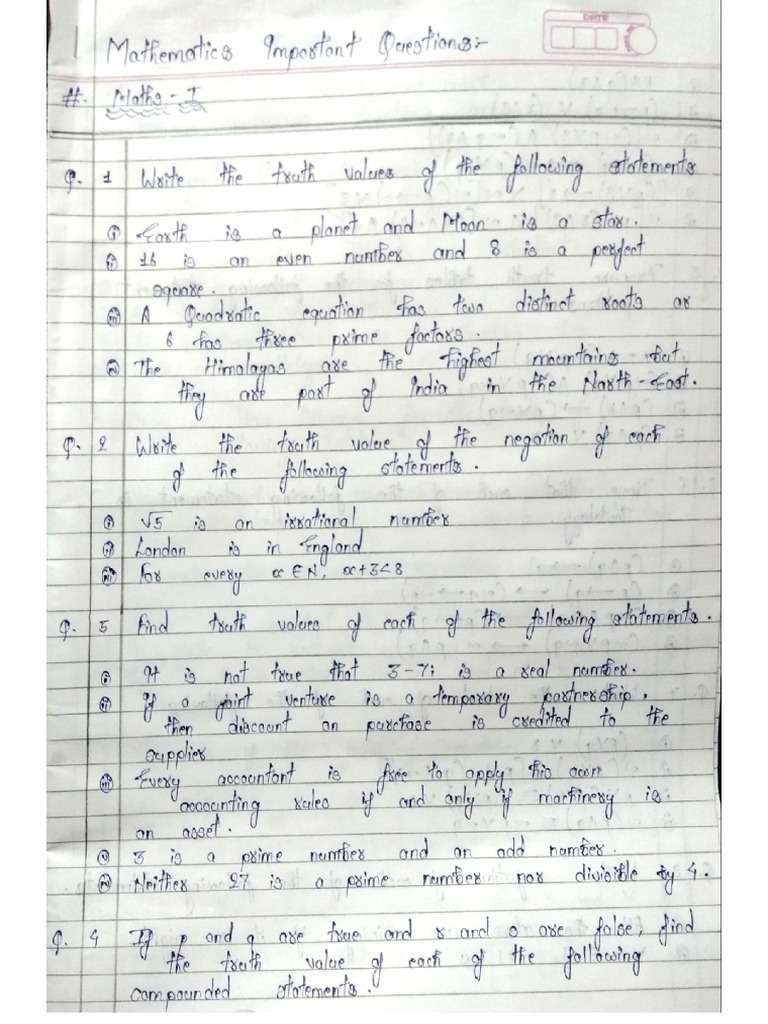 DATE
Mathematics Important Questions:-
#. Maths - I
Q. 1 Write the truth values of the following statements
i Earth is a planet and Moon is a star.
ii 16 is an even number and 8 is a perfect
square.
iii A Quadratic equation has two distinct roots or
6 has three prime factors.
iv The Himalayas are the highest mountains but
they are part of India in the North-East.
Q. 2 Write the truth value of the negation of each
of the following statements.
i √5 is an irrational number
ii London is in England
iii For every x ∈ N, x+3<8
Q. 3 Find truth values of each of the following statements.
i It is not true that 3-7i is a real number.
ii If a joint venture is a temporary partnership,
then discount on purchase is credited to the
supplier
iii Every accountant is free to apply his own
accounting rules if and only if machinery is
an asset.
v 3 is a prime number and an odd number.
iv Neither 27 is a prime number nor divisible by 4.
Q. 4 If p and q are true and r and s are false, find
the truth value of each of the following
compounded statements.